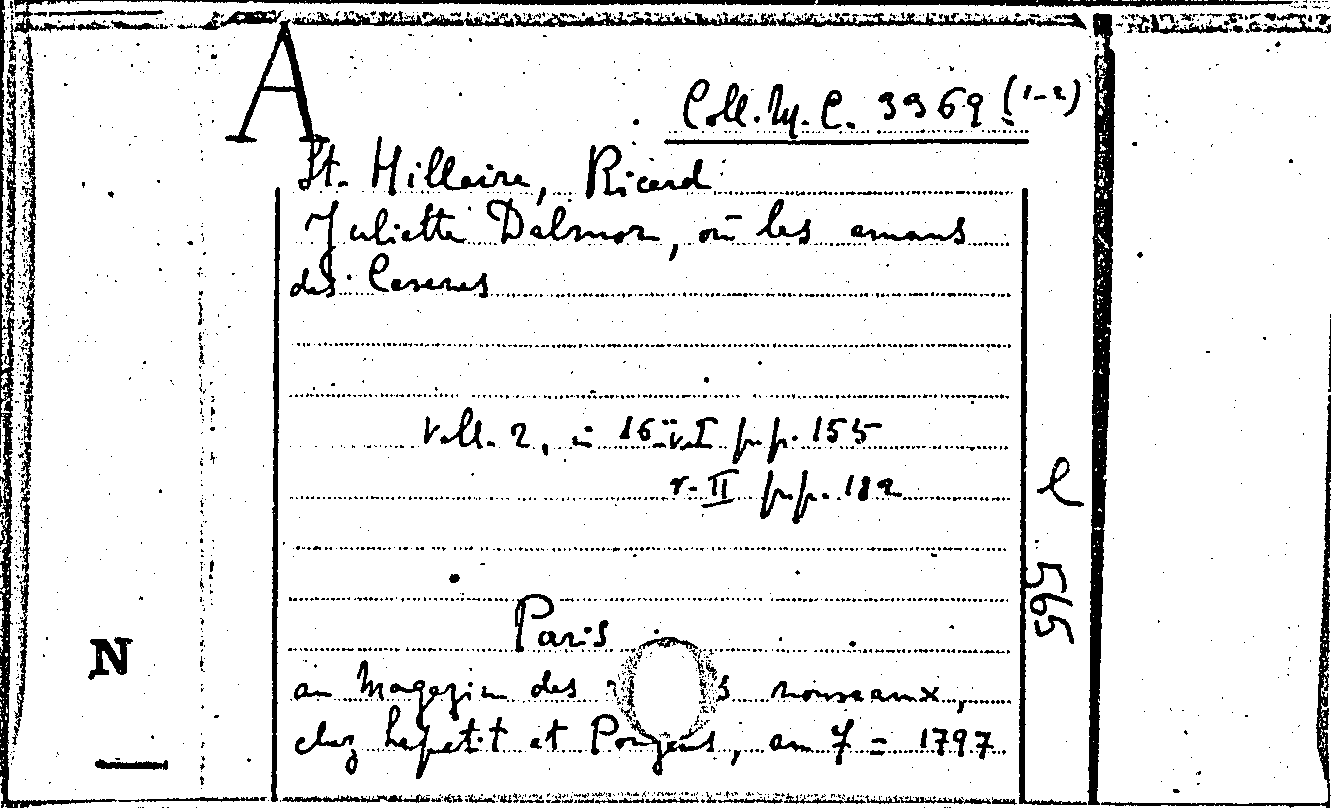 A
Coll. M. C. 3369 (1-2)
St. Hillaire, Ricard
Juliette Dalmor, ou les amans
des Ceseres
Voll. 2, in 16° v. I pp. 155
v. II pp. 182
l 565
Paris
N
au Magazin des nouveaux,
chez Lepetit et Pougens, an 7 = 1797